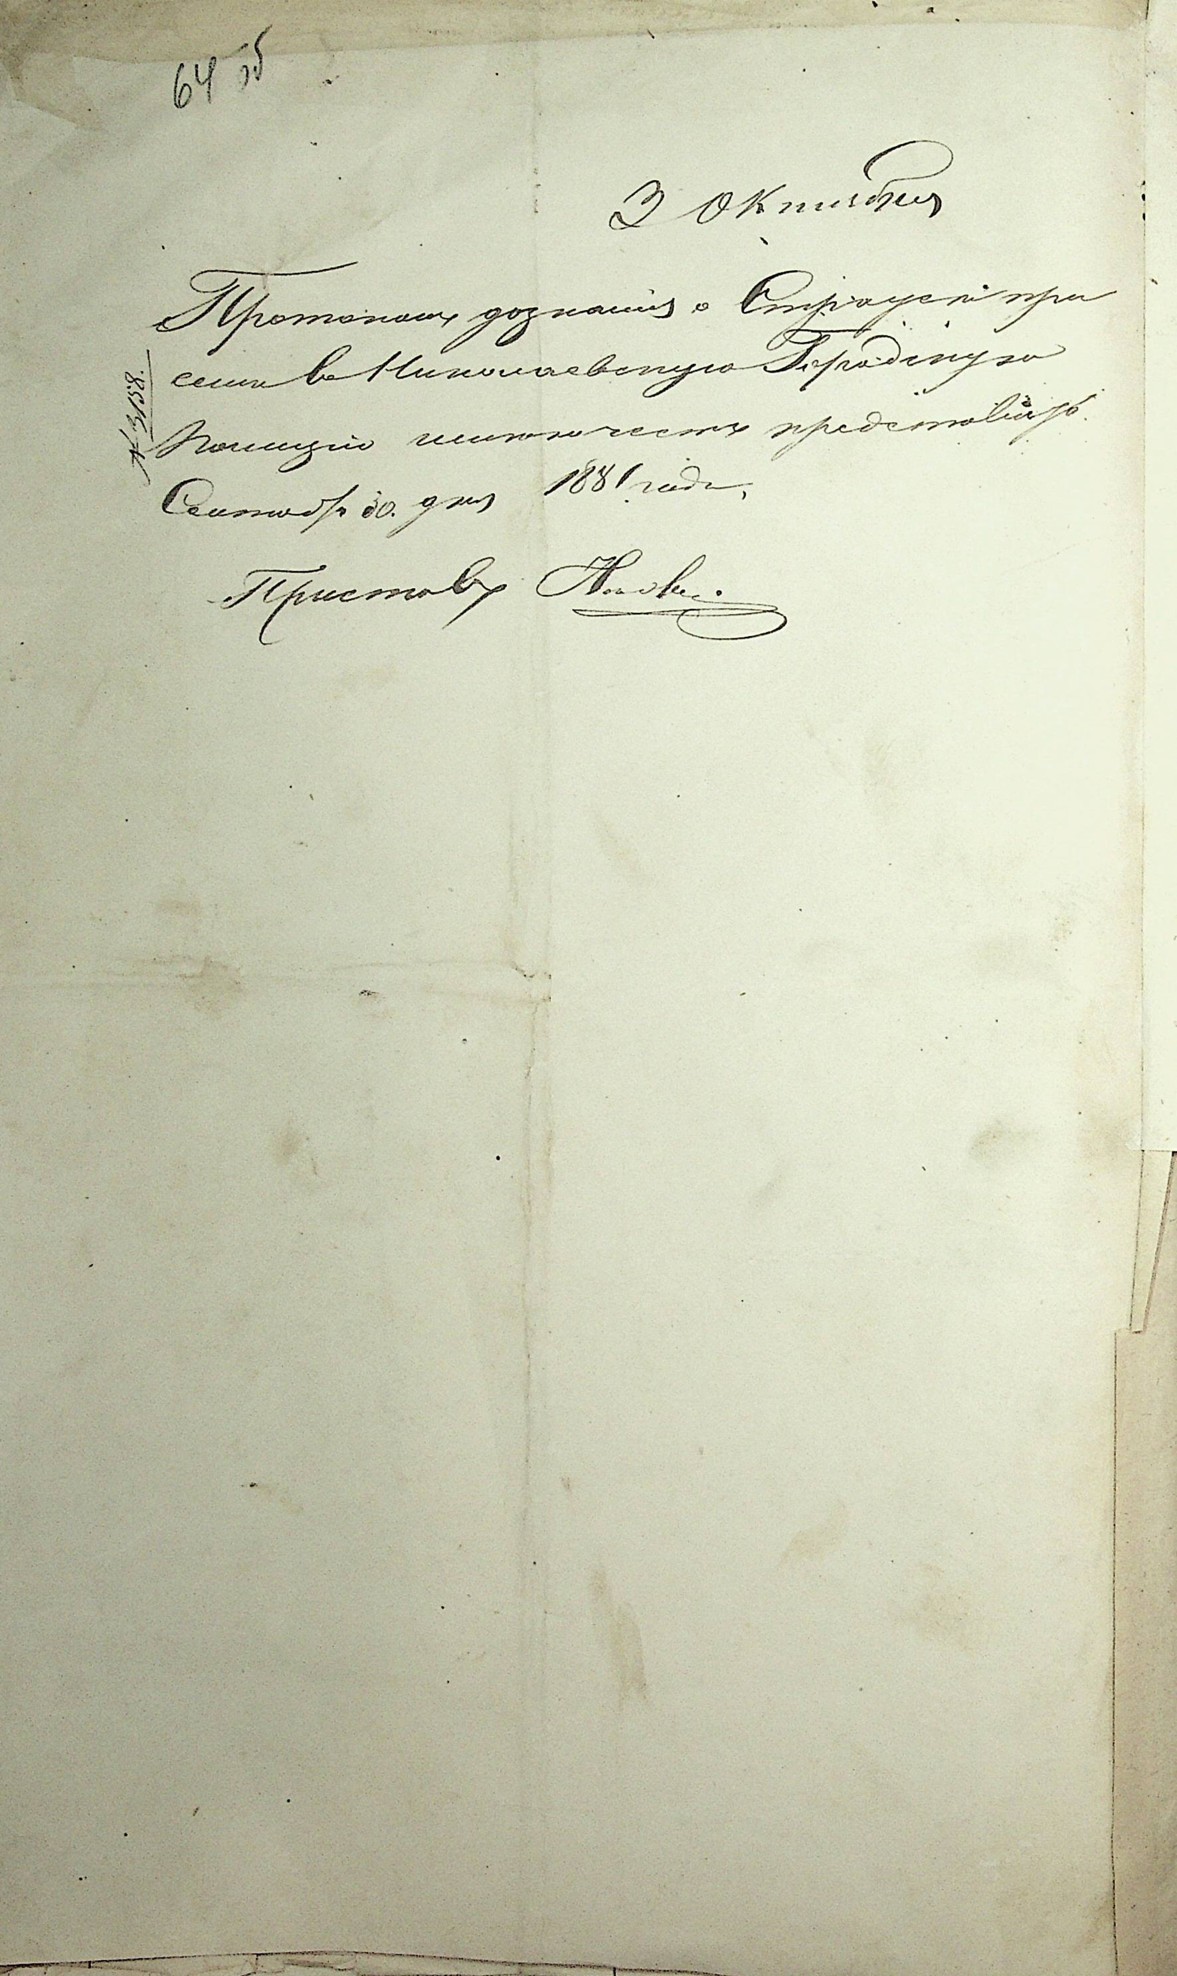 64 об
3 Октября
Протоколъ дознанія о Страусѣ при
семъ въ Николаевскую Городскую
№ 3158
Полицію имѣю честь представить.
Сентября 30. дня 1881 года,
Приставъ